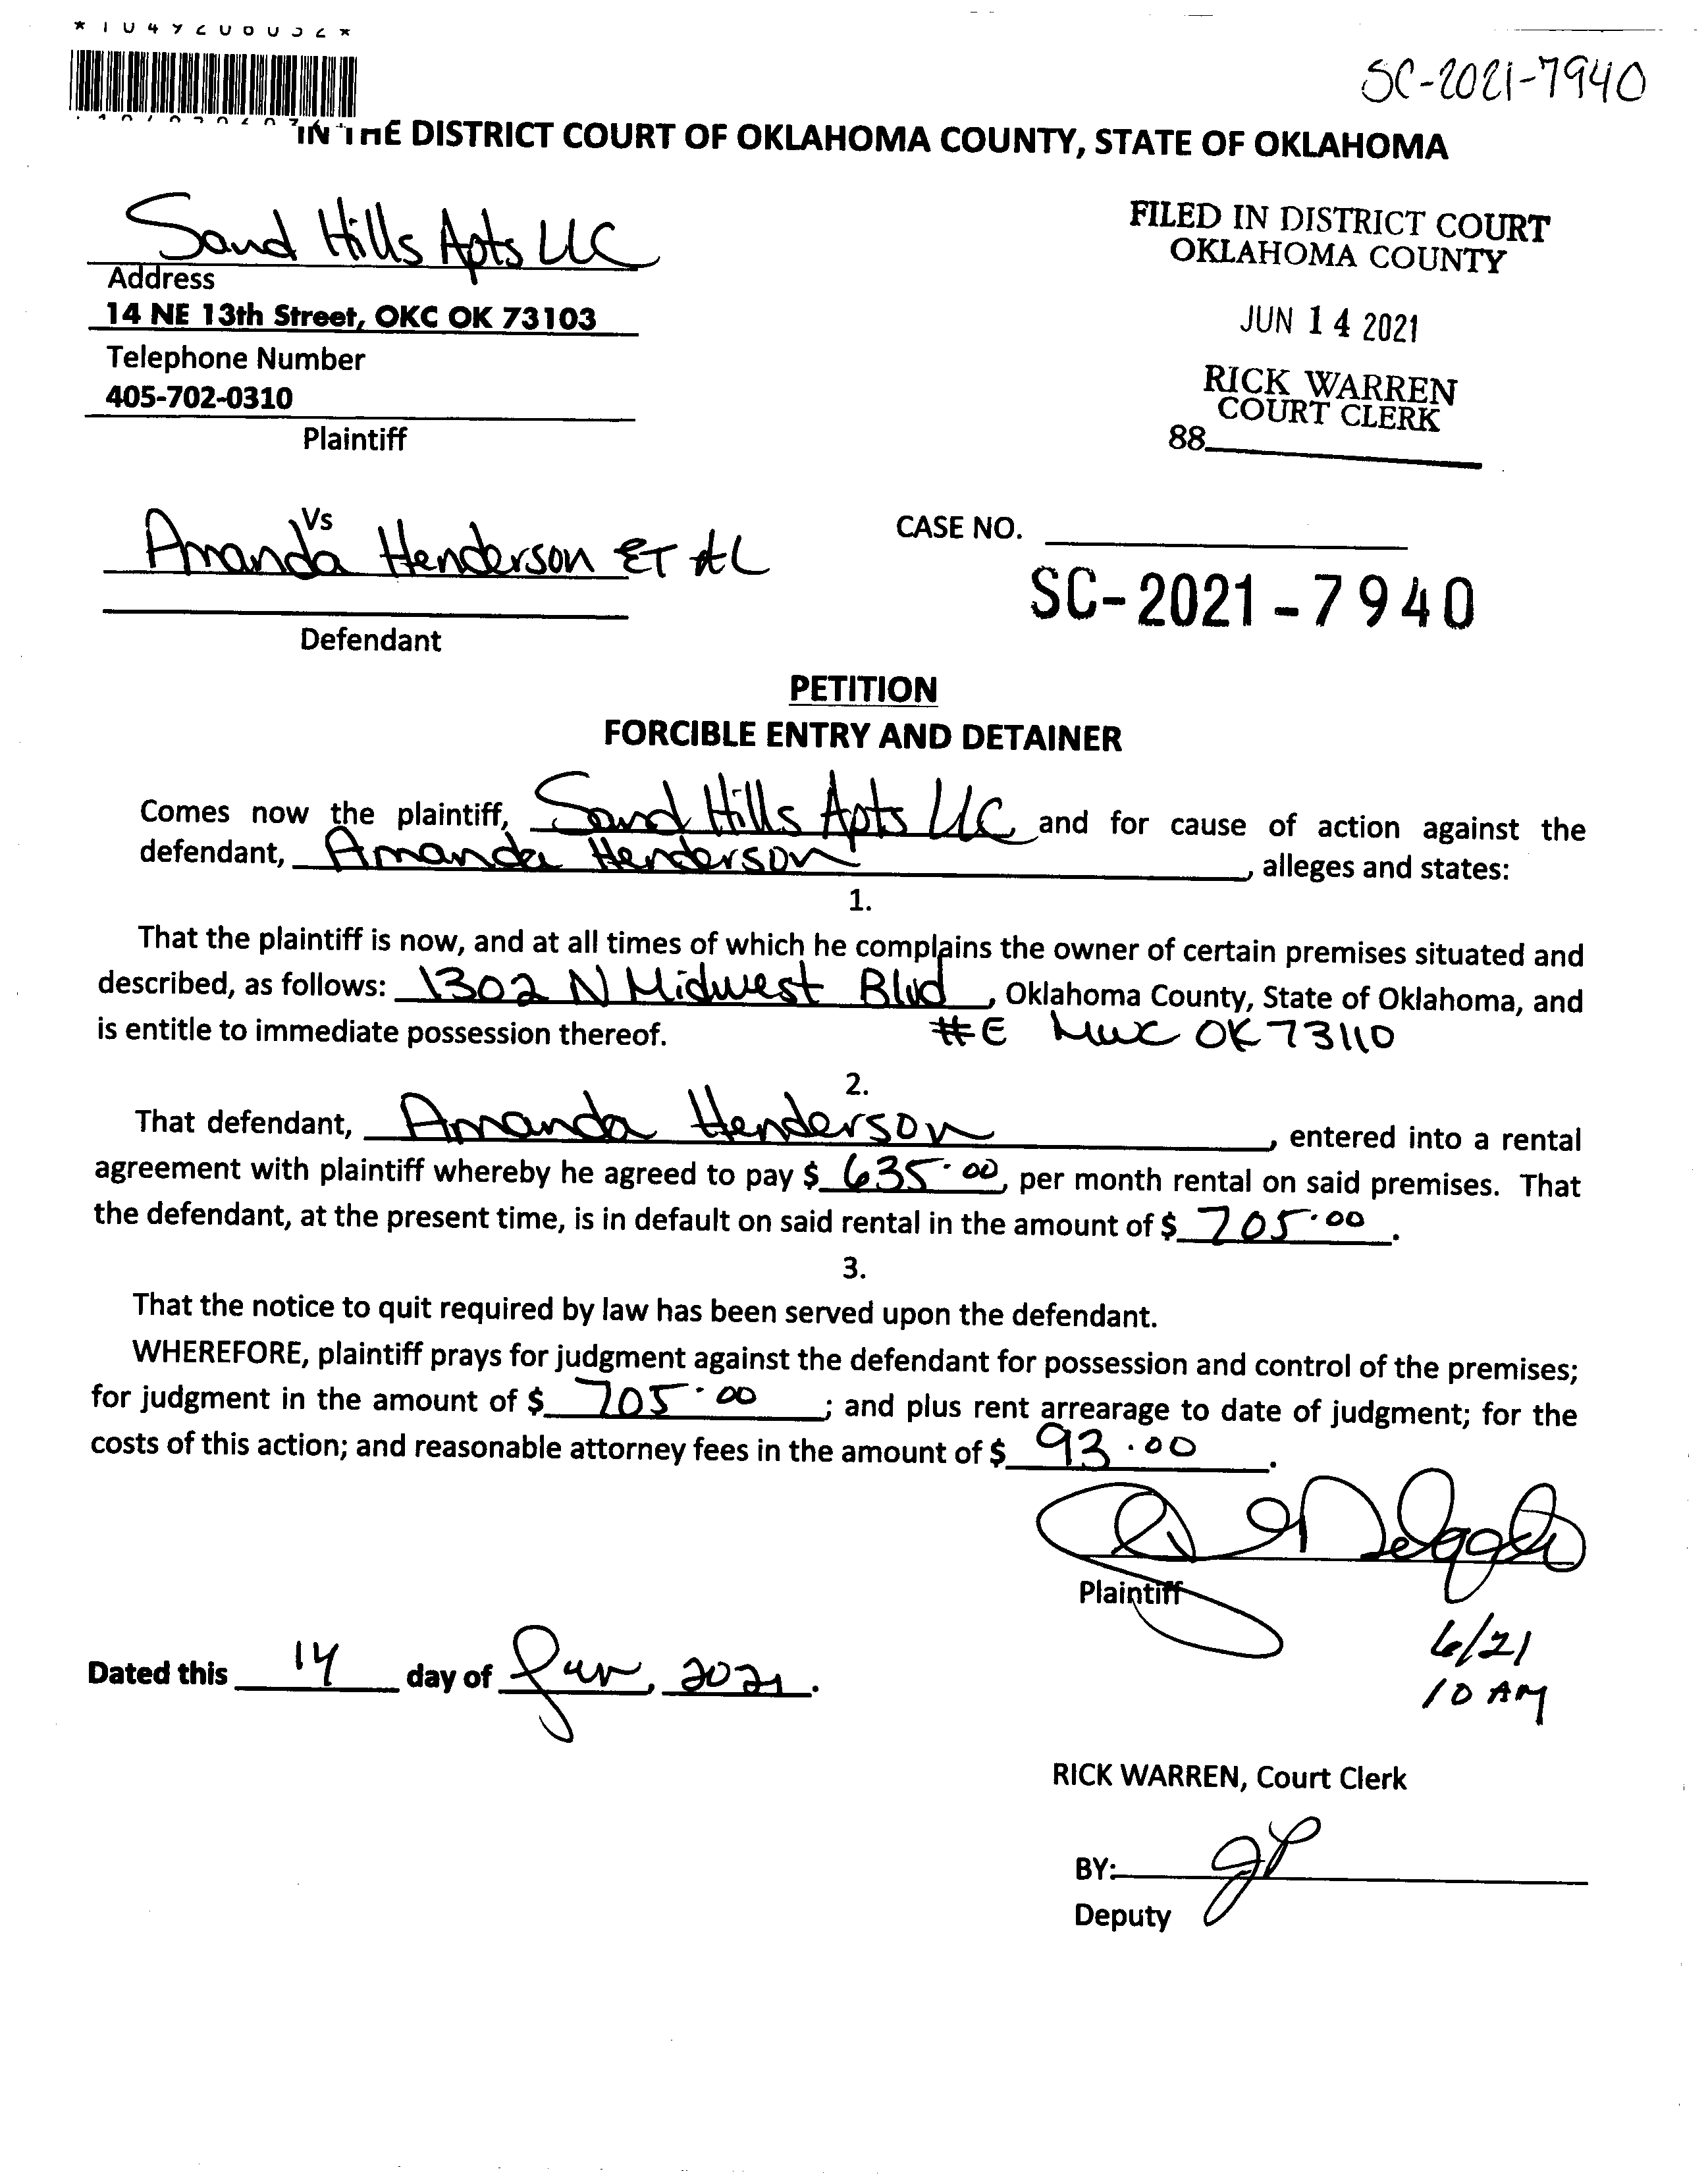 SC-2021-7940
IN THE DISTRICT COURT OF OKLAHOMA COUNTY, STATE OF OKLAHOMA
Sand Hills Apts LLC
Address
14 NE 13th Street, OKC OK 73103
Telephone Number
405-702-0310
Plaintiff
FILED IN DISTRICT COURT
OKLAHOMA COUNTY
JUN 14 2021
RICK WARREN
COURT CLERK
88
Vs
Amanda Henderson ET AL
Defendant
CASE NO.
SC-2021-7940
PETITION
FORCIBLE ENTRY AND DETAINER
Comes now the plaintiff, Sand Hills Apts LLC and for cause of action against the
defendant, Amanda Henderson, alleges and states:
1.
That the plaintiff is now, and at all times of which he complains the owner of certain premises situated and
described, as follows: 1302 N Midwest Blvd, Oklahoma County, State of Oklahoma, and
is entitle to immediate possession thereof. #E MWC OK 73110
2.
That defendant, Amanda Henderson, entered into a rental
agreement with plaintiff whereby he agreed to pay $ 635.00, per month rental on said premises. That
the defendant, at the present time, is in default on said rental in the amount of $ 705.00.
3.
That the notice to quit required by law has been served upon the defendant.
WHEREFORE, plaintiff prays for judgment against the defendant for possession and control of the premises;
for judgment in the amount of $ 705.00; and plus rent arrearage to date of judgment; for the
costs of this action; and reasonable attorney fees in the amount of $ 93.00.
Plaintiff
6/21
10 AM
Dated this 14 day of Jun, 2021.
RICK WARREN, Court Clerk
BY: JP
Deputy